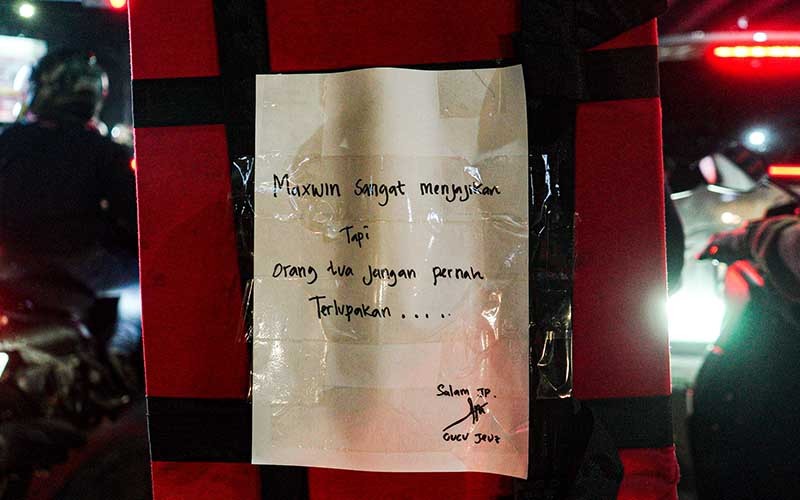 Maxwin sangat menjajikan
Tapi
orang tua jangan pernah
Terlupakan . . . . .
Salam JP.
Cucu Jeuz